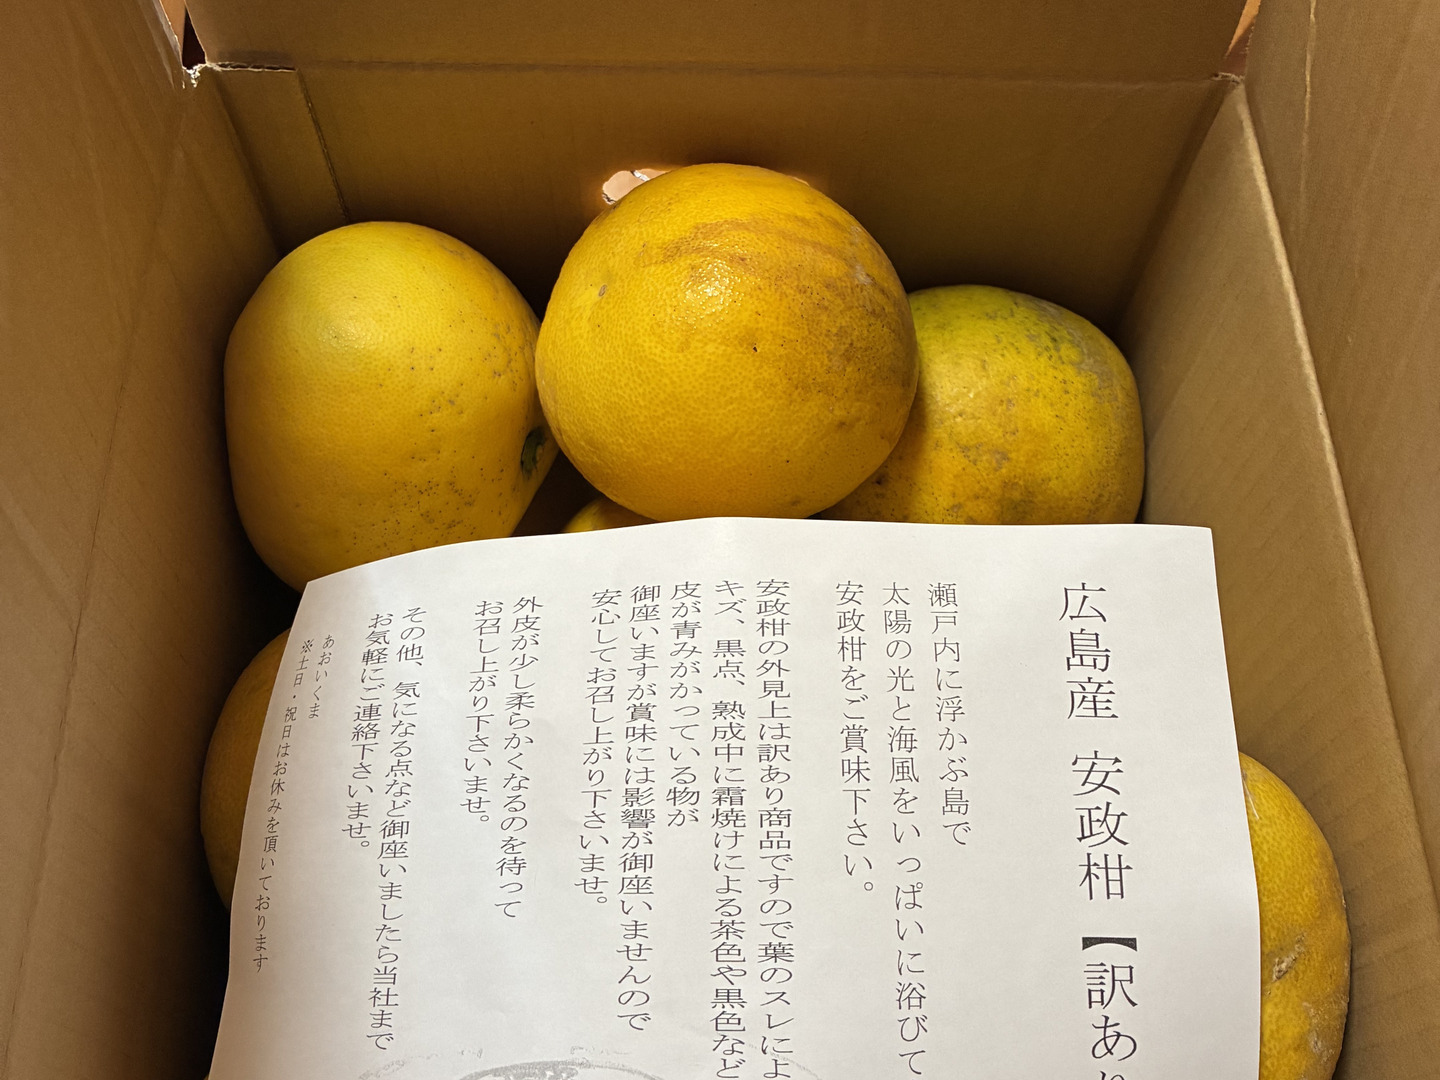 広島産 安政柑 【訳あり
瀬戸内に浮かぶ島で
太陽の光と海風をいっぱいに浴びて
安政柑をご賞味下さい。
安政柑の外見上は訳あり商品ですので葉のスレによ
キズ、黒点、熟成中に霜焼けによる茶色や黒色など
皮が青みがかっている物が
御座いますが賞味には影響が御座いませんので
安心してお召し上がり下さいませ。
外皮が少し柔らかくなるのを待って
お召し上がり下さいませ。
その他、気になる点など御座いましたら当社まで
お気軽にご連絡下さいませ。
あおいくま
※土日・祝日はお休みを頂いております